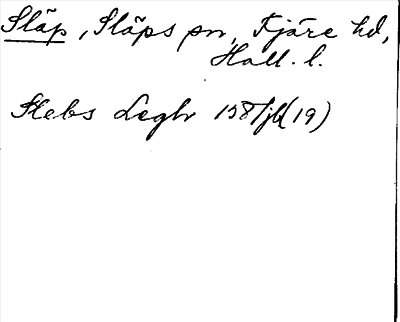 Släp, Släps sn, Fjäre hd,
Hall. l.
Slebs Leghr 158 jb (19)